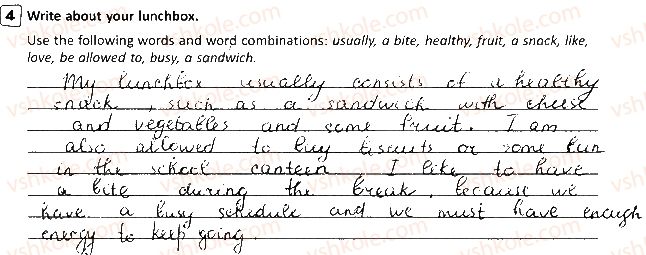 4 Write about your lunchbox.
Use the following words and word combinations: usually, a bite, healthy, fruit, a snack, like,
love, be allowed to, busy, a sandwich.
My lunchbox usually consists of a healthy
snack, such as a sandwich with cheese
and vegetables and some fruit. I am
also allowed to buy biscuits or some bun
in the school canteen. I like to have
a bite during the break, because we
have a busy schedule and we must have enough
energy to keep going.